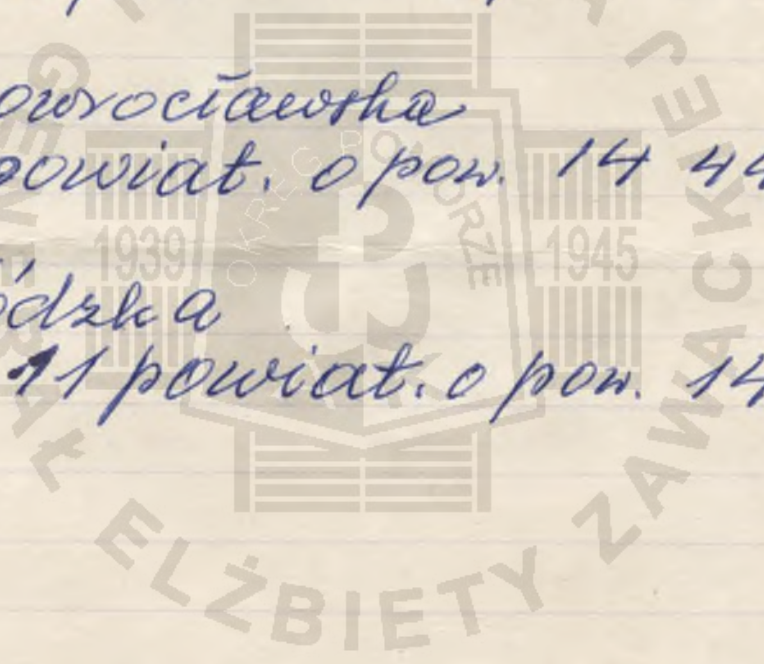 owrocławska
powiat. o pow. 14 44
ódzka
11 powiat. o pow. 14
OKRĘG POMORZE
1939 1945
ELŻBIETY ZAWACKIEJ